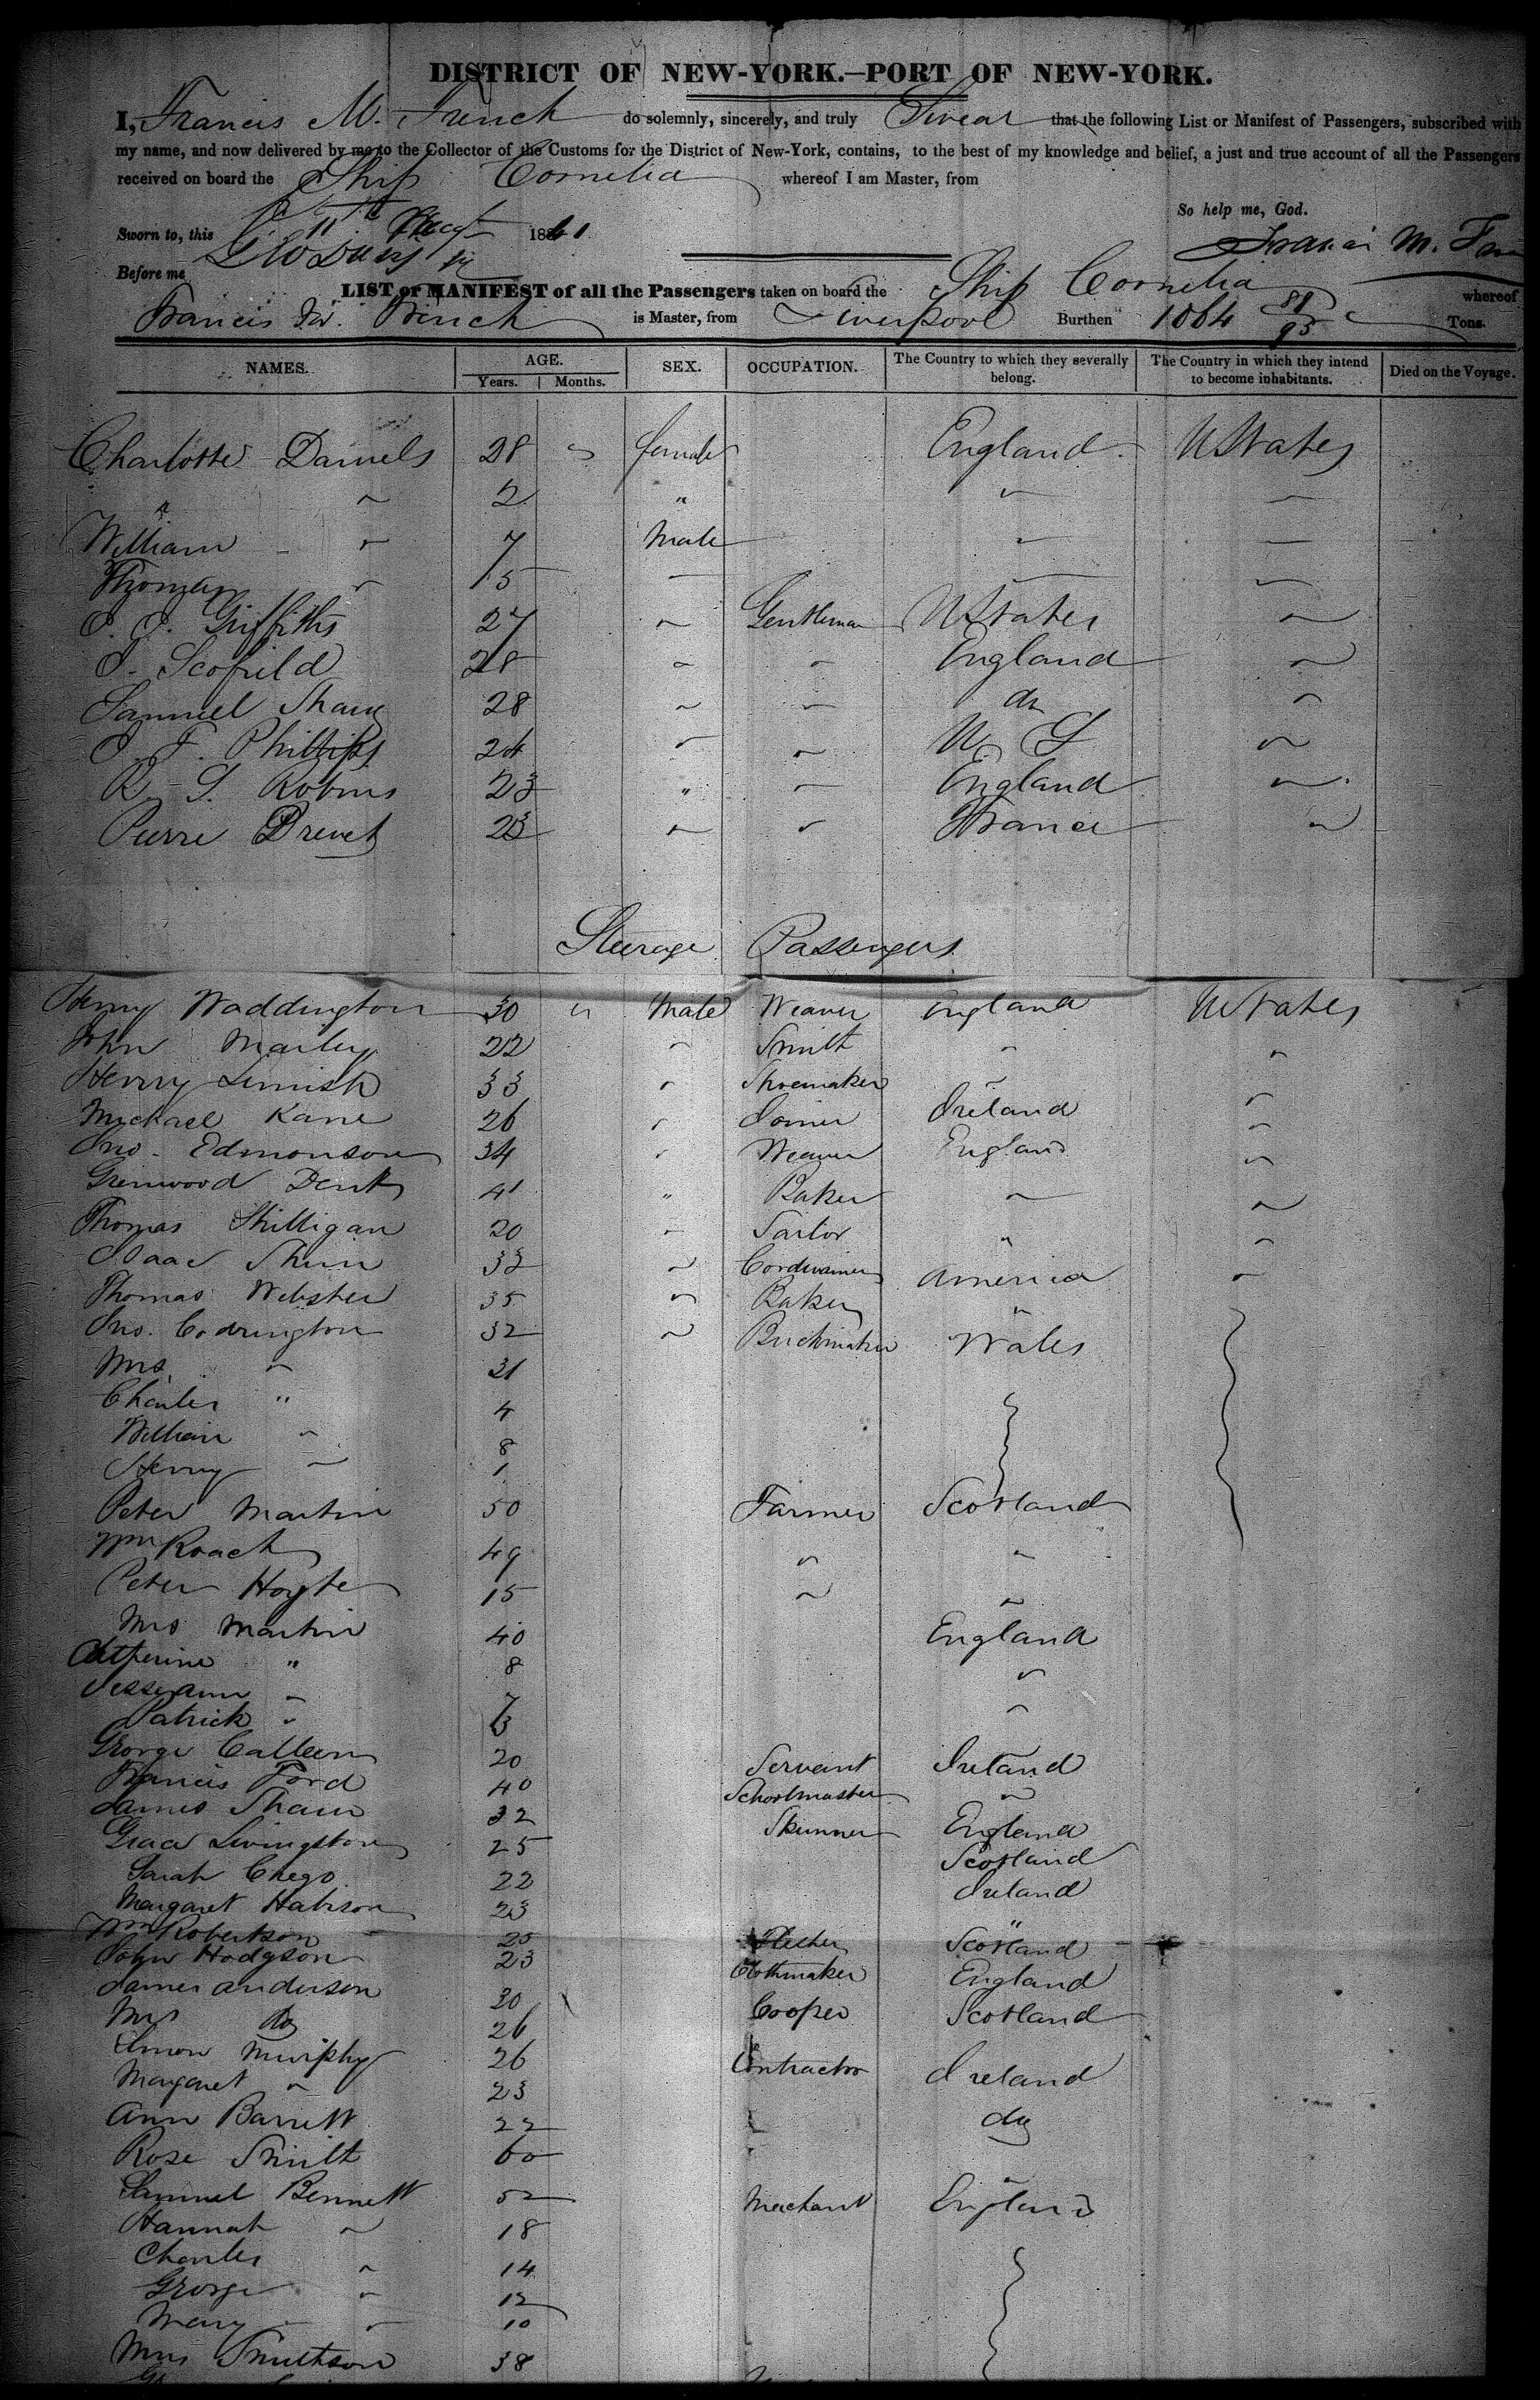 DISTRICT OF NEW-YORK.—PORT OF NEW-YORK.
I, Francis M. French do solemnly, sincerely, and truly Swear that the following List or Manifest of Passengers, subscribed with
my name, and now delivered by me to the Collector of the Customs for the District of New-York, contains, to the best of my knowledge and belief, a just and true account of all the Passengers
received on board the Ship Cornelia whereof I am Master, from
So help me, God.
Sworn to, this 11 1861
Francis M.
Before me
LIST or MANIFEST of all the Passengers taken on board the Ship Cornelia whereof
Francis M. French is Master, from Liverpool Burthen 1064 81/95 Tons.
NAMES. AGE. SEX. OCCUPATION. The Country to which they severally belong. The Country in which they intend to become inhabitants. Died on the Voyage.
Years. Months.
Charlotte Daniels 28 " female England UStates
" " 2 " " "
William " 7 Male " "
Thomas " 5 " " "
J. J. Griffiths 27 " Gentleman UStates "
J. Scofield 28 " " England "
Samuel Shaw 28 " " do "
J. F. Phillips 24 " " U S "
R. S. Robins 23 " " England "
Pierre Drevet 23 " " France "
Steerage Passengers
Henry Waddington 30 " Male Weaver England UStates
John Marley 22 " Smith " "
Henry 33 " Shoemaker " "
Michael Kane 26 " Joiner Ireland "
Jno. Edmonson 34 " Weaver England "
Greenwood Dent 41 " Baker " "
Thomas Skilligan 20 " Tailor " "
Isaac 32 " Cordwainer America "
Thomas Webster 35 " Baker "
Jno. Codrington 32 " Brickmaker Wales
Mrs " 31
Charles " 4
William " 8
Henry " 1
Peter Martin 50 Farmer Scotland
Wm Roach 49 " "
Peter Hoyte 15 " "
Mrs Martin 40 England
Catherine " 8 "
Jessyann " 7 "
Patrick "
George Calleen 20 Servant Ireland
Francis Ford 40 Schoolmaster "
James Shaw 32 Skinner England
Grace Livingston 25 Scotland
Sarah Chego 22 Ireland
Margaret 23 "
Wm Robertson 25 Scotland
John Hodgson 23 Clothmaker England
James Anderson 30 Cooper Scotland
Mrs do 26
Simon Murphy 26 Contractor Ireland
Margaret " 23
Ann Barrett 22 do
Rose Smith 60
Samuel Bennett 52 Merchant England
Hannah " 18
Charles " 14
George " 12
Mary " 10
Mrs Smithson 38